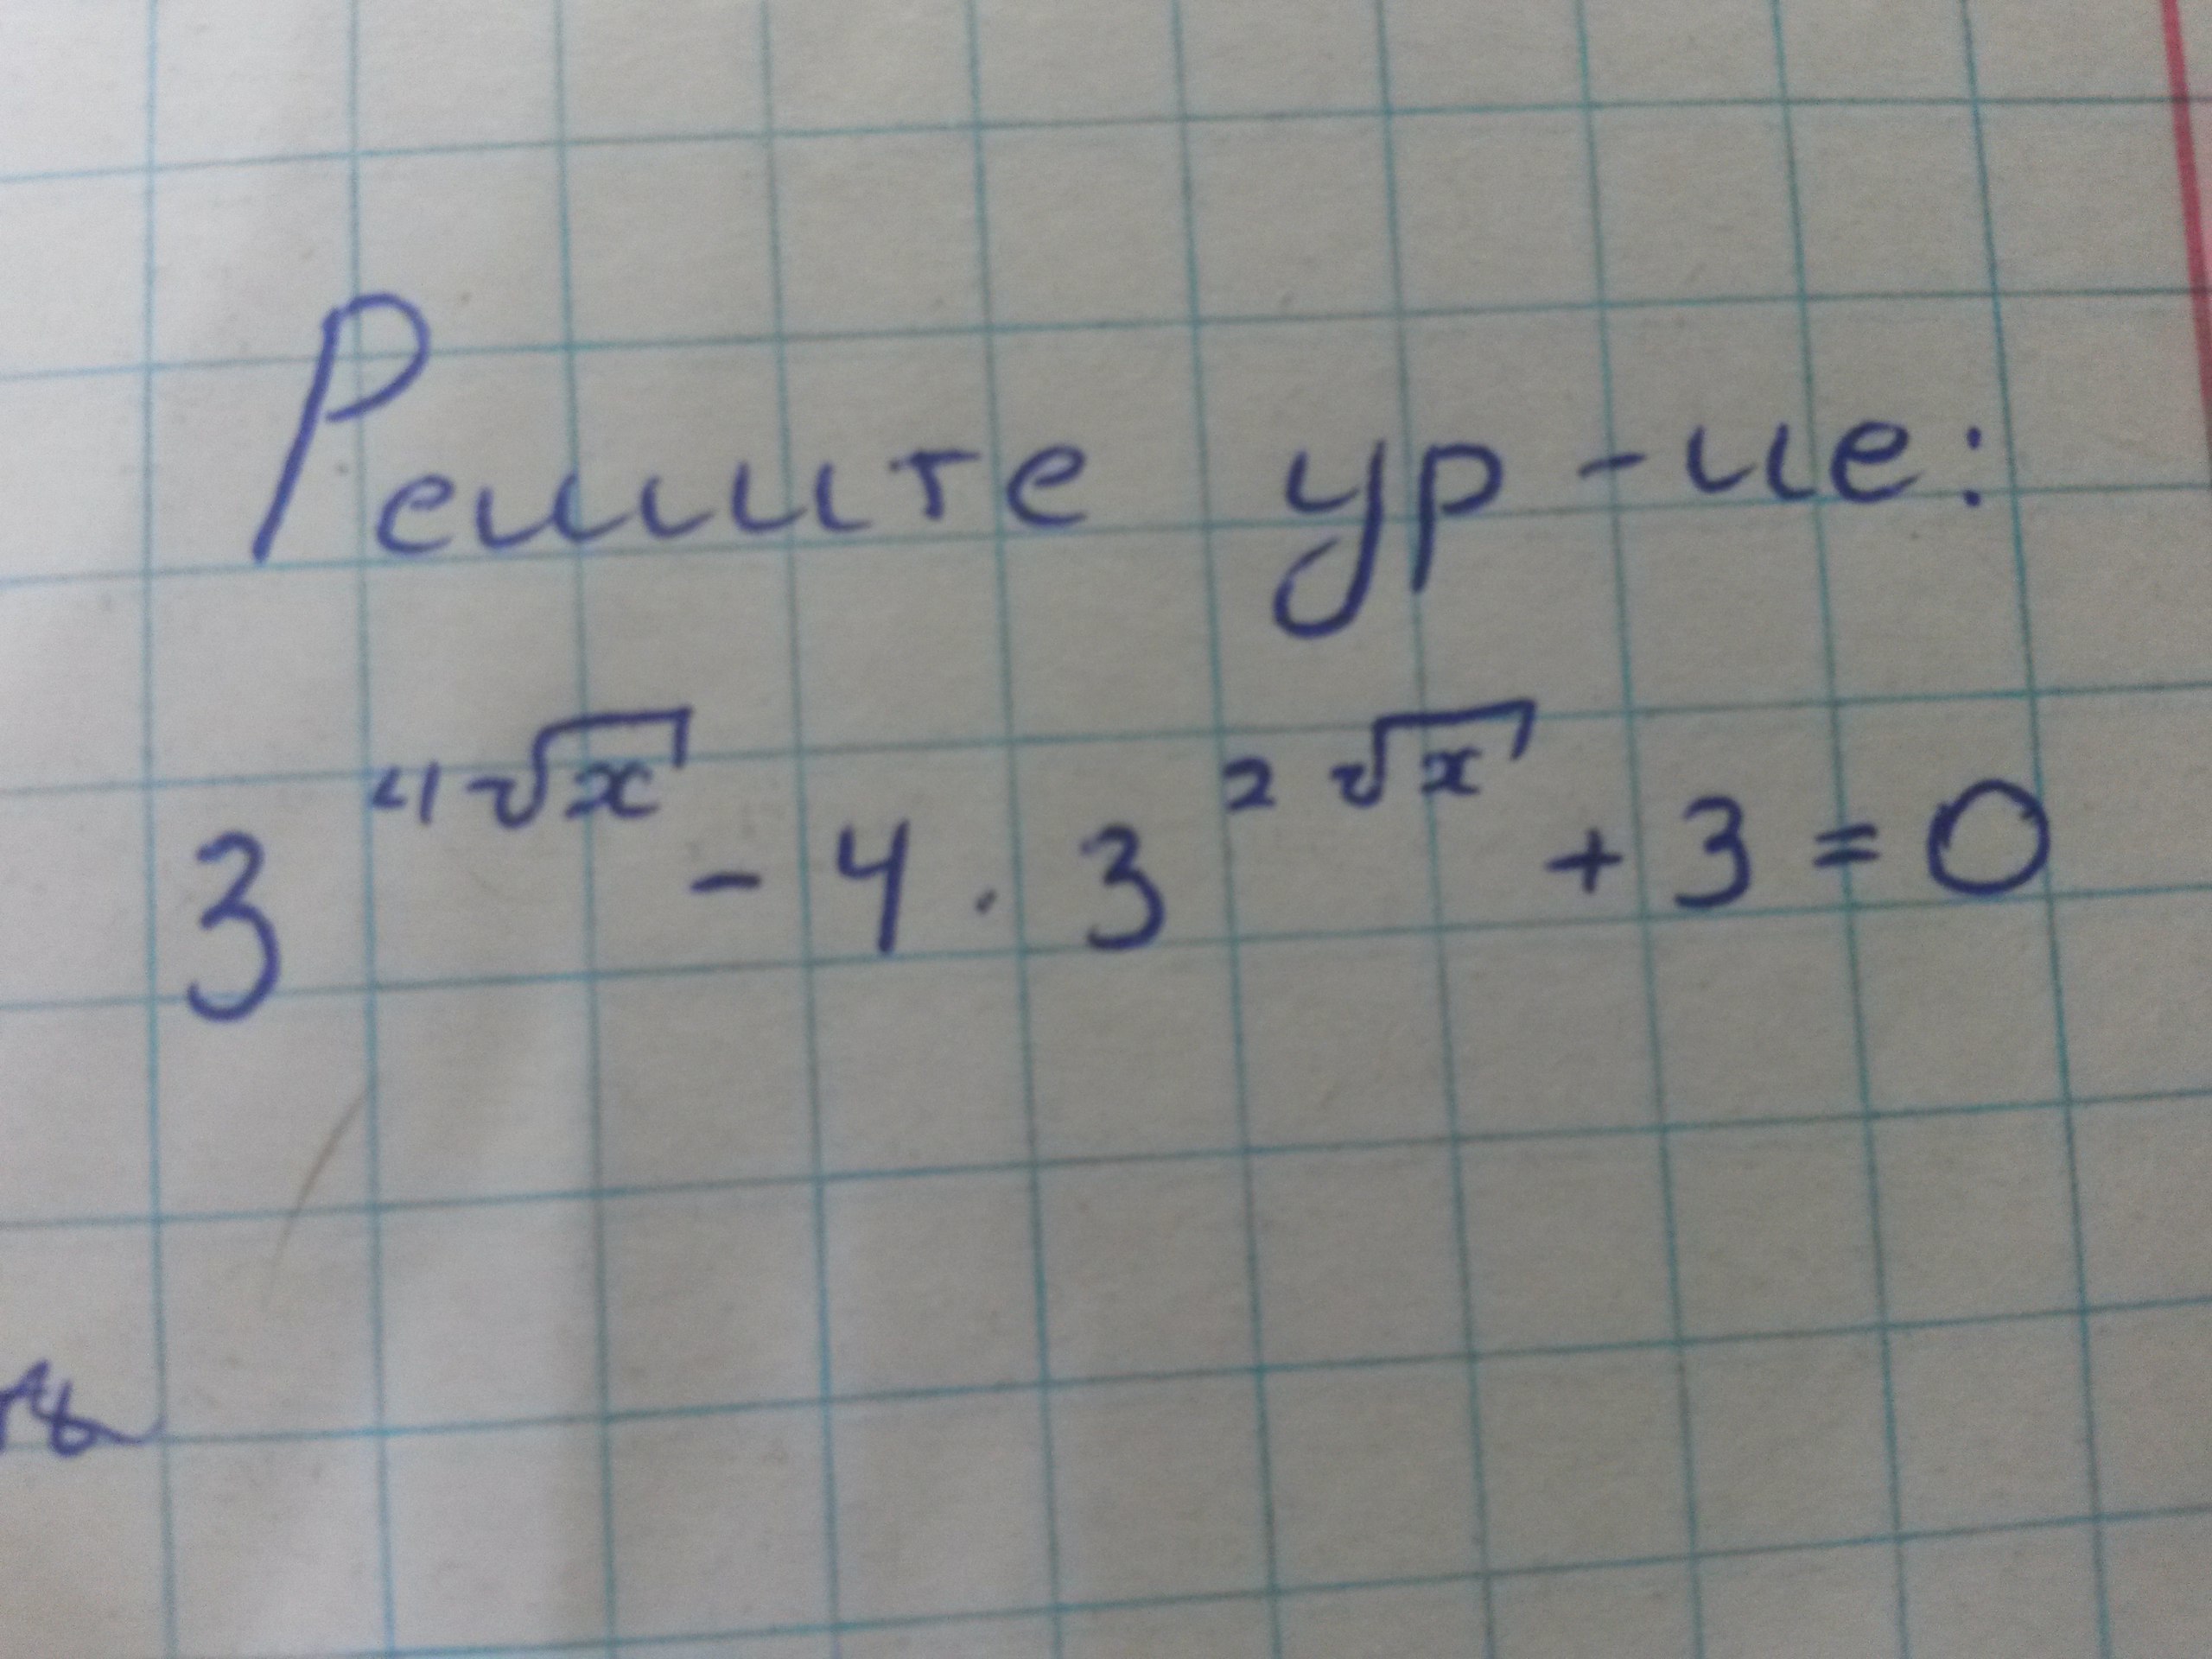 Решите ур-ие:
3^{4√x} - 4 · 3^{2√x} + 3 = 0